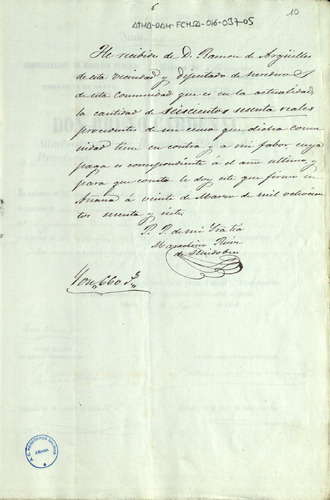 6
ATHA-DAH-FCMSA-016-037-05
10
He recibido de D. Ramon de Argüelles
de esta vecindad y Diputado de herederos
de esta comunidad que es en la actualidad,
la cantidad de Seiscientos sesenta reales
procedentes de un censo que dicha comu
nidad tiene en contra y a mi fabor cuya
paga es correspondiente á el año ultimo y
para que conste le doy este que firmo en
Anana á veinte de Marzo de mil ochocien
tos sesenta y siete
P. P. de mi Sra tia
de Huidobro
Son, 660 rs,,
AÑANA